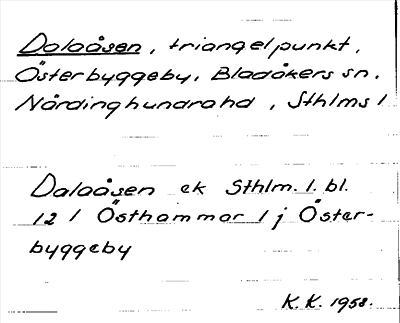 Dalaåsen, triangelpunkt,
Österbyggeby, Bladåkers sn,
Närdinghundra hd, Sthlms l
Dalaåsen ek Sthlm. l. bl.
12 I Östhammar I j Öster-
byggeby
K.K. 1958.